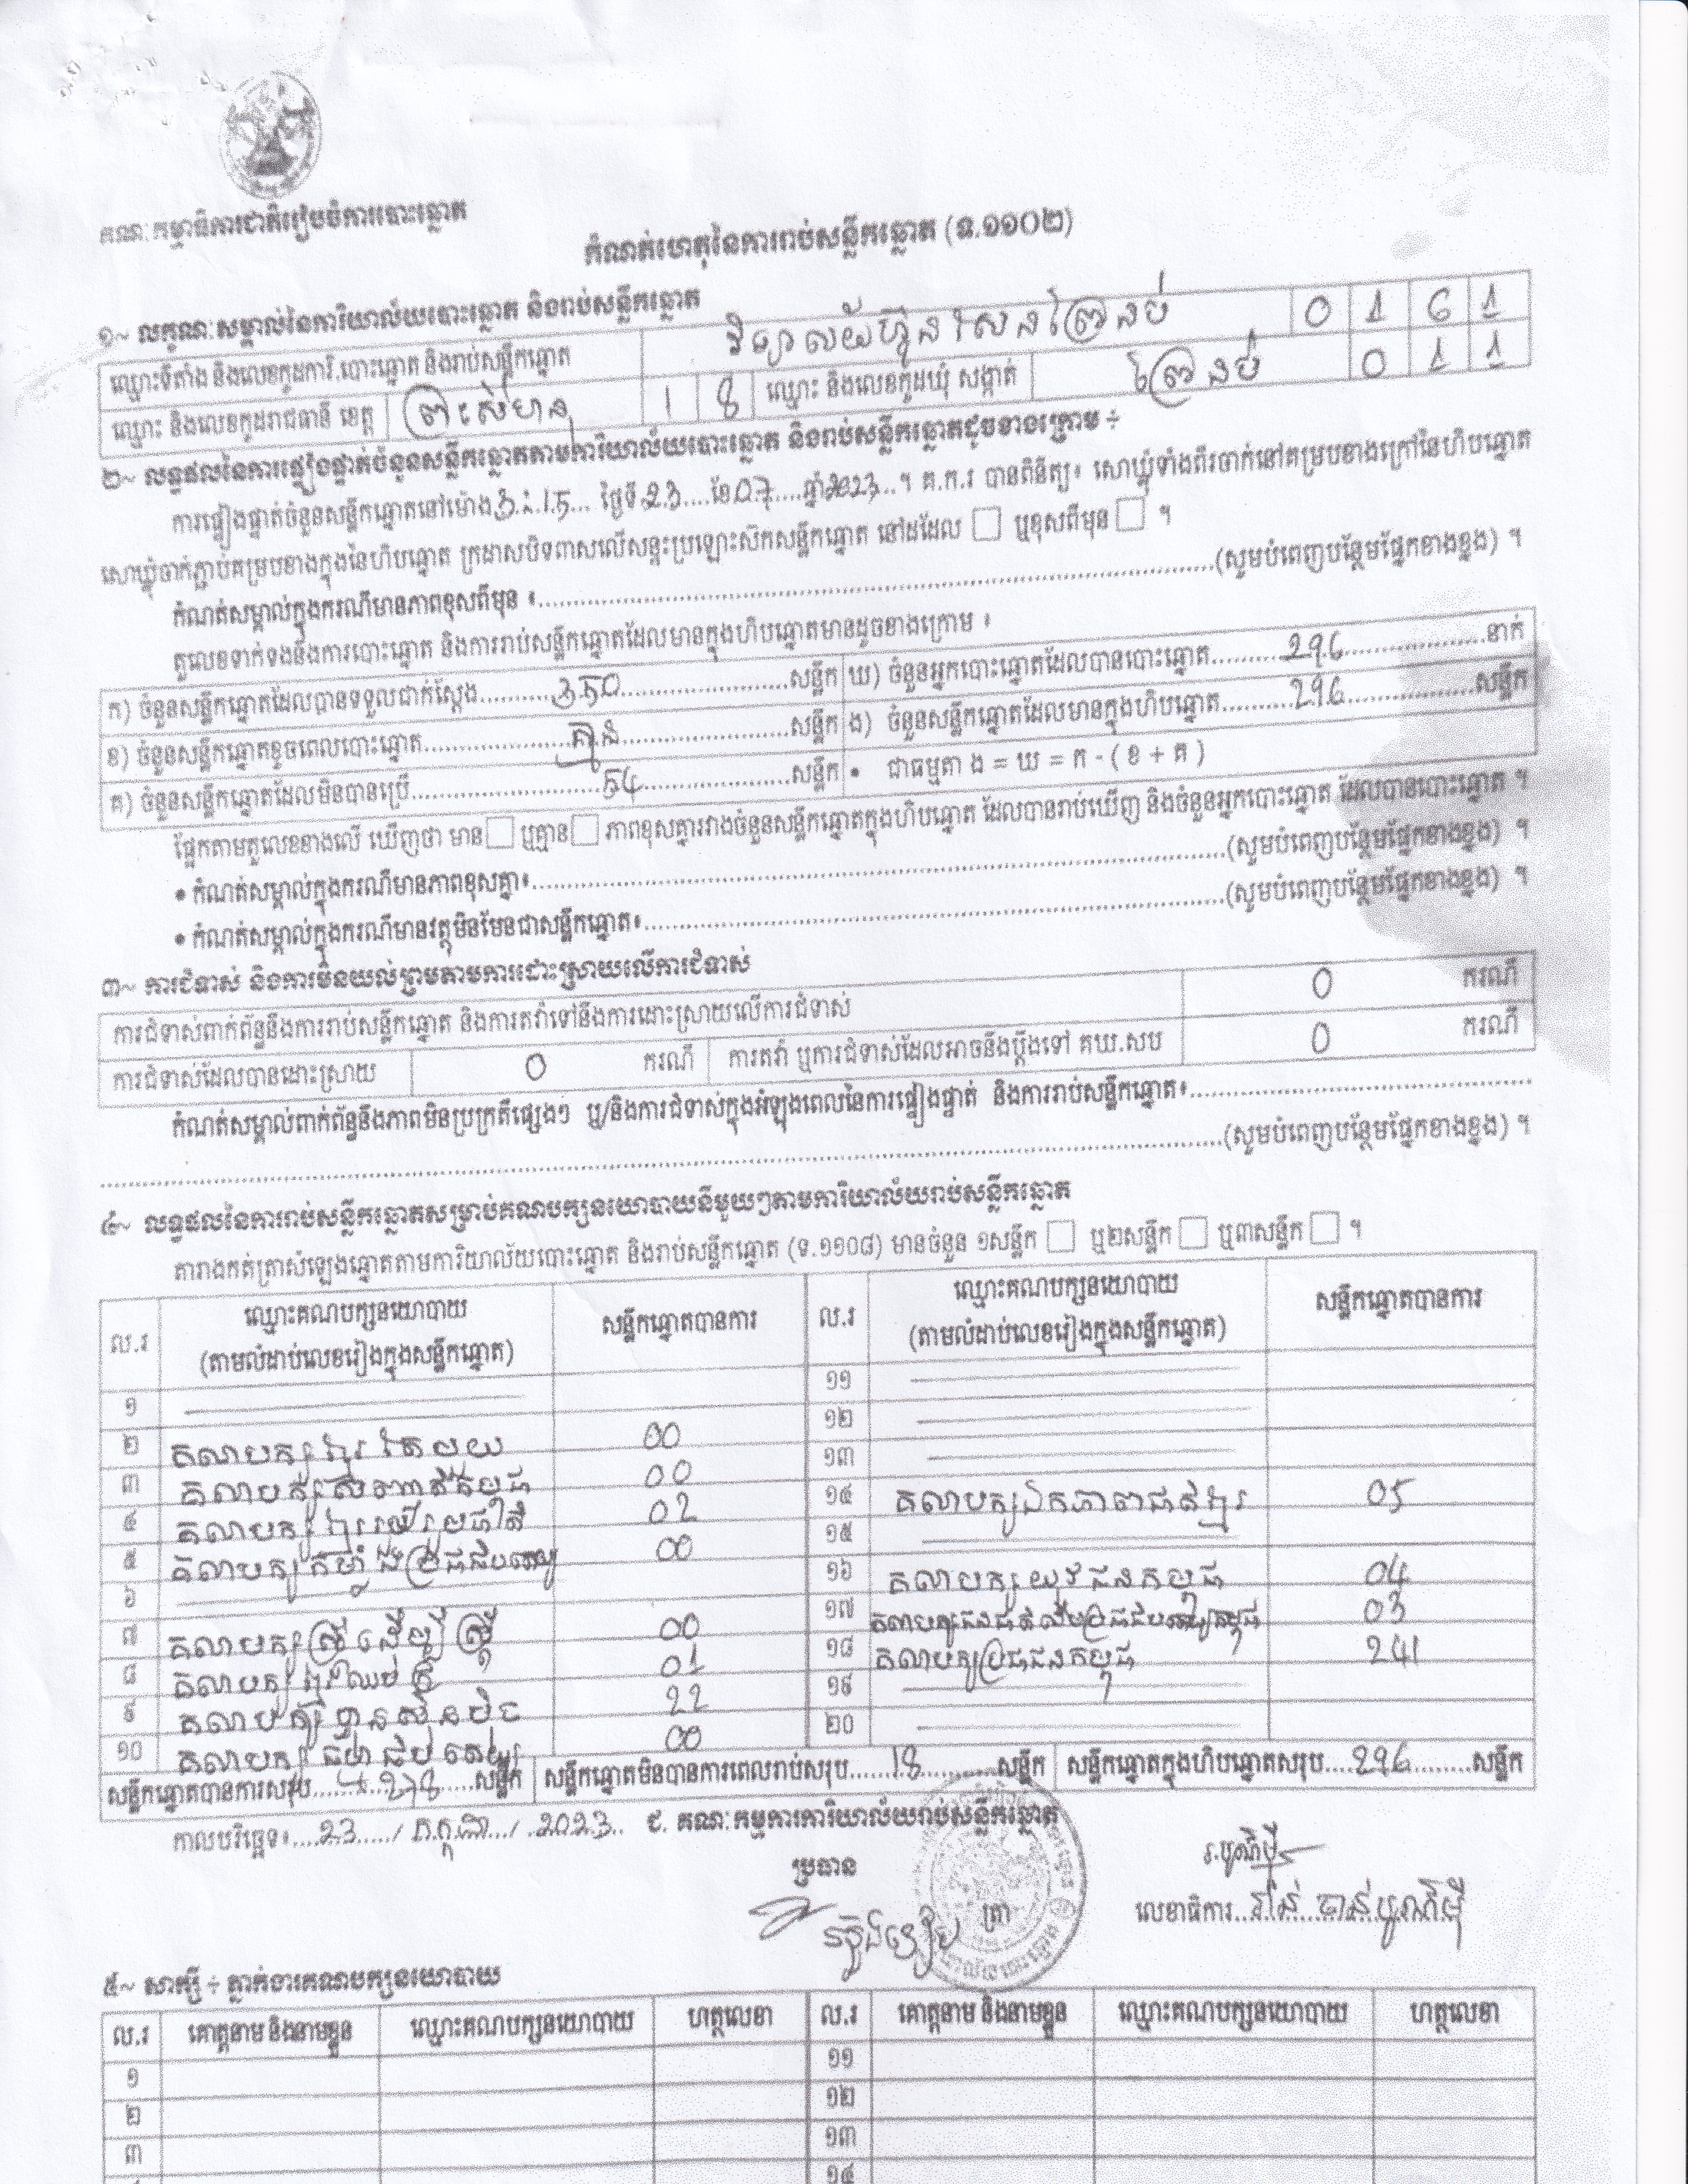 គណៈកម្មាធិការជាតិរៀបចំការបោះឆ្នោត
កំណត់ហេតុនៃការរាប់សន្លឹកឆ្នោត (ទ.១១០២)
១~ លក្ខណៈសម្គាល់នៃការិយាល័យបោះឆ្នោត និងរាប់សន្លឹកឆ្នោត
ឈ្មោះទីតាំង និងលេខកូដការិ.បោះឆ្នោត និងរាប់សន្លឹកឆ្នោត វិទ្យាល័យហ៊ុន សែនព្រៃនប់ 0 1 6 1
ឈ្មោះ និងលេខកូដរាជធានី ខេត្ត ព្រះសីហនុ 1 8 ឈ្មោះ និងលេខកូដឃុំ សង្កាត់ ព្រៃនប់ 0 1 1
២~ លទ្ធផលនៃការផ្ទៀងផ្ទាត់ចំនួនសន្លឹកឆ្នោតតាមការិយាល័យបោះឆ្នោត និងរាប់សន្លឹកឆ្នោតដូចខាងក្រោម ÷
ការផ្ទៀងផ្ទាត់ចំនួនសន្លឹកឆ្នោតនៅម៉ោង 3:15 ថ្ងៃទី 23 ខែ 07 ឆ្នាំ 2023 ។ គ.ក.រ បានពិនិត្យ៖ សោឃ្លុំទាំងពីរចាក់នៅគម្របខាងក្រៅនៃហិបឆ្នោត
សោឃ្លុំចាក់ភ្ជាប់គម្របខាងក្នុងនៃហិបឆ្នោត ក្រដាសបិទពាសលើសន្ទះប្រឡោះស៊កសន្លឹកឆ្នោត នៅដដែល ☐ ឬខុសពីមុន ☐ ។
កំណត់សម្គាល់ក្នុងករណីមានភាពខុសពីមុន ៖ (សូមបំពេញបន្ថែមផ្នែកខាងខ្នង) ។
តួលេខទាក់ទងនឹងការបោះឆ្នោត និងការរាប់សន្លឹកឆ្នោតដែលមានក្នុងហិបឆ្នោតមានដូចខាងក្រោម ៖
ក) ចំនួនសន្លឹកឆ្នោតដែលបានទទួលជាក់ស្តែង 350 សន្លឹក ឃ) ចំនួនអ្នកបោះឆ្នោតដែលបានបោះឆ្នោត 296 នាក់
ខ) ចំនួនសន្លឹកឆ្នោតខូចពេលបោះឆ្នោត គ្មាន សន្លឹក ង) ចំនួនសន្លឹកឆ្នោតដែលមានក្នុងហិបឆ្នោត 296 សន្លឹក
គ) ចំនួនសន្លឹកឆ្នោតដែលមិនបានប្រើ 54 សន្លឹក • ជាធម្មតា ង = ឃ = ក - ( ខ + គ )
ផ្អែកតាមតួលេខខាងលើ ឃើញថា មាន ☐ ឬគ្មាន ☐ ភាពខុសគ្នារវាងចំនួនសន្លឹកឆ្នោតក្នុងហិបឆ្នោត ដែលបានរាប់ឃើញ និងចំនួនអ្នកបោះឆ្នោត ដែលបានបោះឆ្នោត ។
• កំណត់សម្គាល់ក្នុងករណីមានភាពខុសគ្នា៖ (សូមបំពេញបន្ថែមផ្នែកខាងខ្នង) ។
• កំណត់សម្គាល់ក្នុងករណីមានវត្ថុមិនមែនជាសន្លឹកឆ្នោត៖ (សូមបំពេញបន្ថែមផ្នែកខាងខ្នង) ។
៣~ ការជំទាស់ និងការមិនយល់ព្រមតាមការដោះស្រាយលើការជំទាស់
ការជំទាស់ពាក់ព័ន្ធនឹងការរាប់សន្លឹកឆ្នោត និងការតវ៉ាទៅនឹងការដោះស្រាយលើការជំទាស់ 0 ករណី
ការជំទាស់ដែលបានដោះស្រាយ 0 ករណី ការតវ៉ា ឬការជំទាស់ដែលអាចនឹងប្តឹងទៅ គឃ.សប 0 ករណី
កំណត់សម្គាល់ពាក់ព័ន្ធនឹងភាពមិនប្រក្រតីផ្សេងៗ ឬ/និងការជំទាស់ក្នុងអំឡុងពេលនៃការផ្ទៀងផ្ទាត់ និងការរាប់សន្លឹកឆ្នោត៖
(សូមបំពេញបន្ថែមផ្នែកខាងខ្នង) ។
៤~ លទ្ធផលនៃការរាប់សន្លឹកឆ្នោតសម្រាប់គណបក្សនយោបាយនីមួយៗតាមការិយាល័យរាប់សន្លឹកឆ្នោត
តារាងកត់ត្រាសំឡេងឆ្នោតតាមការិយាល័យបោះឆ្នោត និងរាប់សន្លឹកឆ្នោត (ទ.១១០៨) មានចំនួន ១សន្លឹក ☐ ឬ២សន្លឹក ☐ ឬ៣សន្លឹក ☐ ។
ល.រ ឈ្មោះគណបក្សនយោបាយ សន្លឹកឆ្នោតបានការ ល.រ ឈ្មោះគណបក្សនយោបាយ សន្លឹកឆ្នោតបានការ
(តាមលំដាប់លេខរៀងក្នុងសន្លឹកឆ្នោត) (តាមលំដាប់លេខរៀងក្នុងសន្លឹកឆ្នោត)
១ ១១
២ គណបក្សខ្មែរតែមួយ 00 ១២
៣ គណបក្ស 00 ១៣
៤ គណបក្សខ្មែររួបរួមជាតិ 02 ១៤ គណបក្សឯកភាពជាតិខ្មែរ 05
៥ គណបក្សកម្លាំងប្រជាធិបតេយ្យ 00 ១៥
៦ ១៦ គណបក្សយុវជនកម្ពុជា 04
៧ គណបក្សស្ត្រីដើម្បីស្ត្រី 00 ១៧ គណបក្ស 03
៨ គណបក្ស 01 ១៨ គណបក្សប្រជាជនកម្ពុជា 241
៩ គណបក្ស 22 ១៩
១០ គណបក្ស 00 ២០
សន្លឹកឆ្នោតបានការសរុប 278 សន្លឹក សន្លឹកឆ្នោតមិនបានការពេលរាប់សរុប 18 សន្លឹក សន្លឹកឆ្នោតក្នុងហិបឆ្នោតសរុប 296 សន្លឹក
កាលបរិច្ឆេទ៖ 23 / កក្កដា / 2023 ជ. គណៈកម្មការការិយាល័យរាប់សន្លឹកឆ្នោត
ប្រធាន
ត្រា
លេខាធិការ
៥~ សាក្សី ÷ ភ្នាក់ងារគណបក្សនយោបាយ
ល.រ គោត្តនាម និងនាមខ្លួន ឈ្មោះគណបក្សនយោបាយ ហត្ថលេខា ល.រ គោត្តនាម និងនាមខ្លួន ឈ្មោះគណបក្សនយោបាយ ហត្ថលេខា
១ ១១
២ ១២
៣ ១៣
១៤